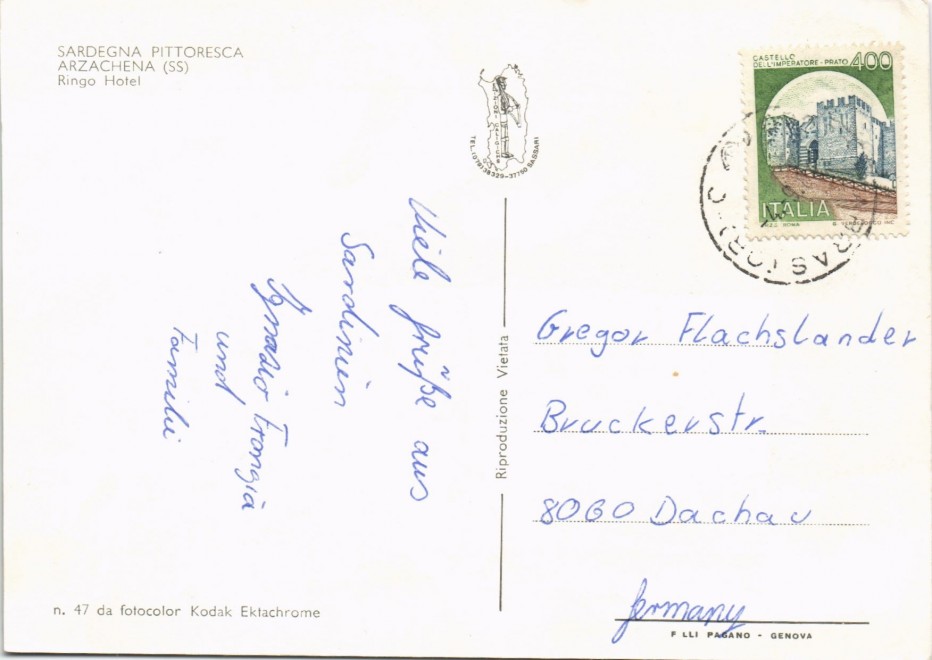 SARDEGNA PITTORESCA
ARZACHENA (SS)
Ringo Hotel
CASTELLO
DELL'IMPERATORE - PRATO 400
ITALIA
ROMA
TEL. (079) 38329 - 37790 SASSARI
Viele Grüße aus
Sardinien
Ignazio
und
Familie
Riproduzione Vietata
Gregor Flachslander
Bruckerstr.
8060 Dachau
Germany
n. 47 da fotocolor Kodak Ektachrome
F LLI PAGANO - GENOVA